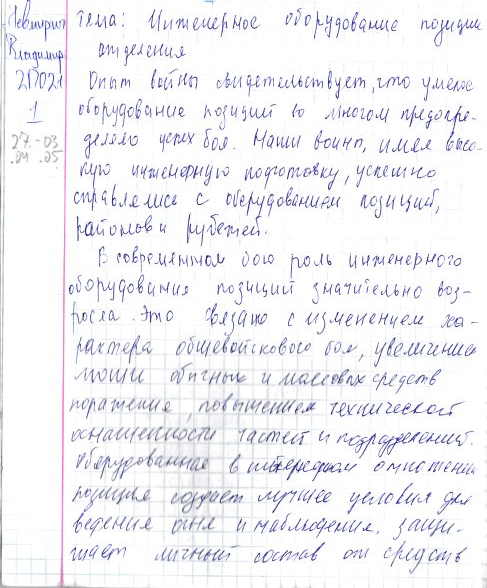 Невмирич
Владимир
21П021
1
27.-03
.04 .05
Тема: Инженерное оборудование позиции
отделения
Опыт войны свидетельствует, что умелое
оборудование позиций во многом предопре-
деляло успех боя. Наши воины, имея высо-
кую инженерную подготовку, успешно
справлялись с оборудованием позиций,
районов и рубежей.
В современном бою роль инженерного
оборудования позиций значительно воз-
росла. Это связано с изменением ха-
рактера общевойскового боя, увеличения
мощи обычных и массовых средств
поражения, повышением технической
оснащенности частей и подразделений.
Оборудованная в инженерном отношении
позиция создает лучшее условия для
ведения огня и наблюдения, защи-
щает личный состав от средств